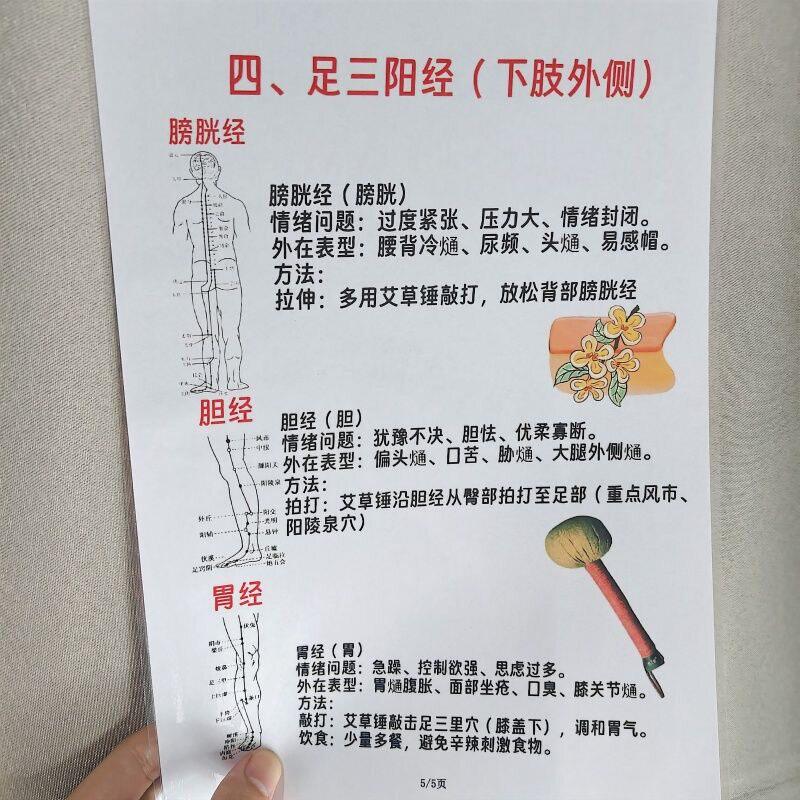 四、足三阳经（下肢外侧）
膀胱经
膀胱经（膀胱）
情绪问题：过度紧张、压力大、情绪封闭。
外在表型：腰背冷熥、尿频、头熥、易感帽。
方法：
拉伸：多用艾草锤敲打，放松背部膀胱经
胆经
胆经（胆）
情绪问题：犹豫不决、胆怯、优柔寡断。
外在表型：偏头熥、口苦、胁熥、大腿外侧熥。
方法：
拍打：艾草锤沿胆经从臀部拍打至足部（重点风市、
阳陵泉穴）
风市
中渎
膝阳关
阳陵泉
外丘
阳交
光明
阳辅
悬钟
丘墟
足临泣
地五会
足窍阴
胃经
胃经（胃）
情绪问题：急躁、控制欲强、思虑过多。
外在表型：胃熥腹胀、面部坐疮、口臭、膝关节熥。
方法：
敲打：艾草锤敲击足三里穴（膝盖下），调和胃气。
饮食：少量多餐，避免辛辣刺激食物。
伏兔
5/5页